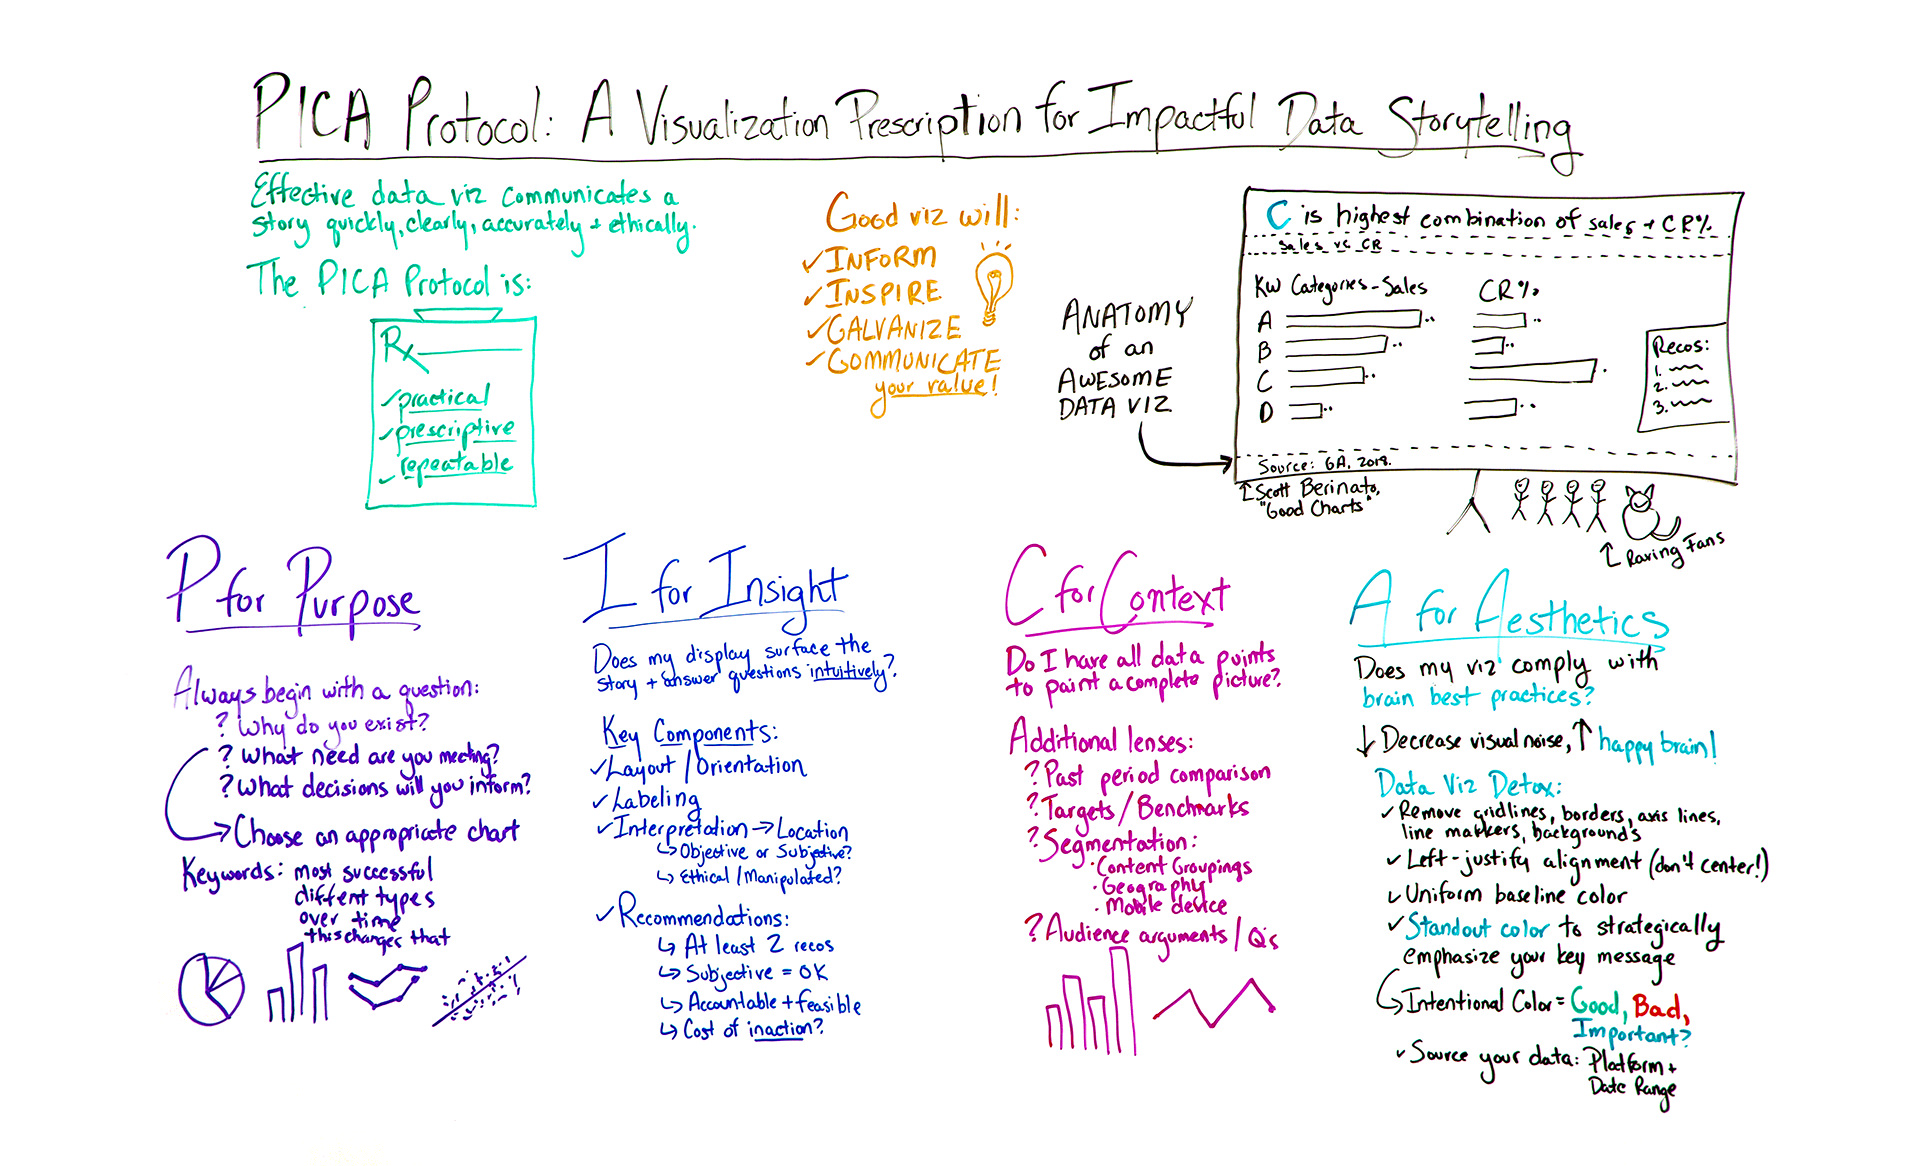 PICA Protocol: A Visualization Prescription for Impactful Data Storytelling
Effective data viz communicates a
story quickly, clearly, accurately + ethically.
The PICA Protocol is:
Rx
✓practical
✓prescriptive
✓repeatable
Good viz will:
✓INFORM
✓INSPIRE
✓GALVANIZE
✓COMMUNICATE
your value!
ANATOMY
of an
AWESOME
DATA VIZ
C is highest combination of sales + CR%
Sales vs CR
KW Categories-Sales
CR%
A
B
C
D
Recos:
1.
2.
3.
Source: GA, 2019.
↑Scott Berinato,
"Good Charts"
↑ Raving Fans
P for Purpose
Always begin with a question:
? Why do you exist?
? What need are you meeting?
? What decisions will you inform?
→Choose an appropriate chart
Keywords: most successful
different types
over time
this changes that
I for Insight
Does my display surface the
story + answer questions intuitively?
Key Components:
✓Layout/Orientation
✓Labeling
✓Interpretation→Location
↳Objective or Subjective?
↳Ethical/Manipulated?
✓Recommendations:
↳At least 2 recos
↳Subjective = OK
↳Accountable+feasible
↳Cost of inaction?
C for Context
Do I have all data points
to paint a complete picture?
Additional lenses:
?Past period comparison
?Targets/Benchmarks
?Segmentation:
·Content Groupings
·Geography
·Mobile device
?Audience arguments/Q's
A for Aesthetics
Does my viz comply with
brain best practices?
↓Decrease visual noise,↑happy brain!
Data Viz Detox:
✓Remove gridlines, borders, axis lines,
line markers, backgrounds
✓Left-justify alignment (don't center!)
✓Uniform baseline color
✓Standout color to strategically
emphasize your key message
→Intentional Color=Good, Bad,
Important?
✓Source your data: Platform +
Date Range